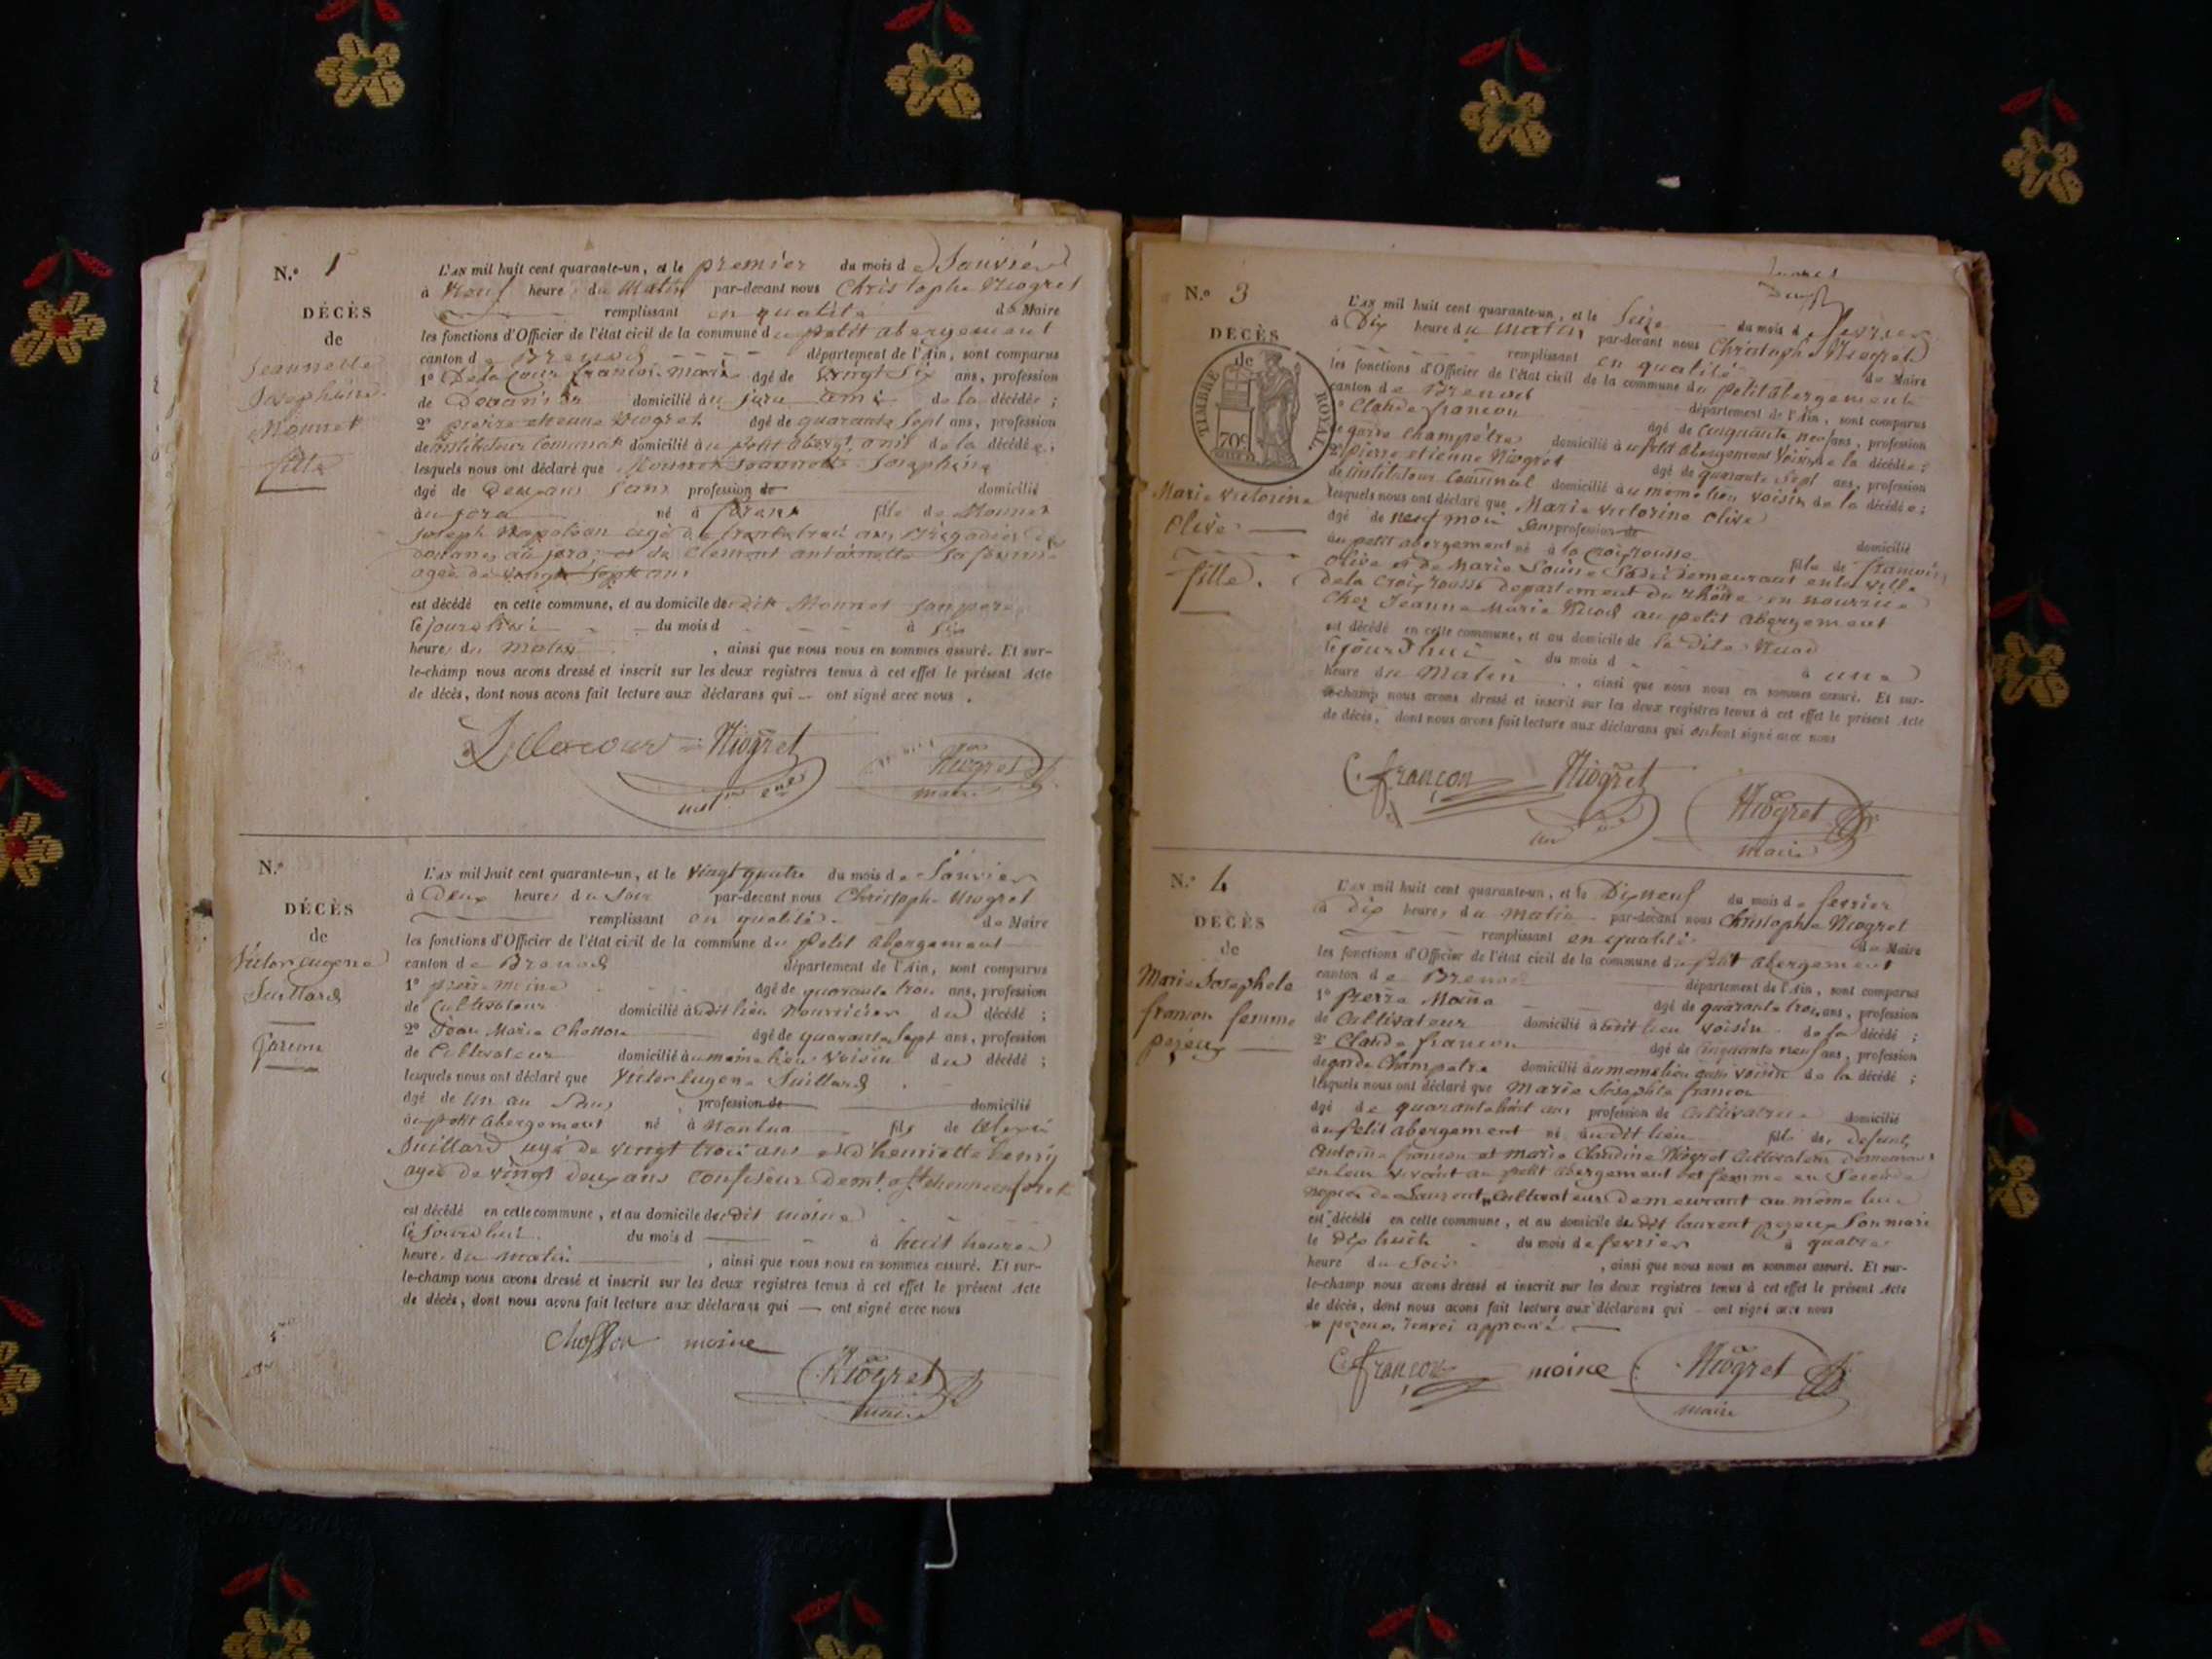 N.o 1
DÉCÈS
de
Jeannette
Josephine
Monnet
fille
L'AN mil huit cent quarante-un, et le premier du mois de Janvier
à Neuf heures du Matin par-devant nous Christophe Niogret
remplissant en qualité de Maire
les fonctions d'Officier de l'état civil de la commune du petit abergement
canton de Brenod département de l'Ain, sont comparus
1o Delacour francois marie âgé de vingt Six ans, profession
de Douanier domicilié au jora ami de la décédée ;
2o pierre etienne Niogret âgé de quarante Sept ans, profession
de instituteur Communal domicilié au petit abergt ami de la décédée ;
lesquels nous ont déclaré que Monnet Jeannette Josephine
âgé de Deux ans Sans profession de domicilié
au jora né à fille de Monnet
joseph Napoleon agé de trente trois ans Brigadier de
douanes au jora et de Clement antoinette sa femme
agée de vingt Sept ans
est décédé en cette commune, et au domicile du dit Monnet son pere
le jourdhui du mois d à Six
heure du matin , ainsi que nous nous en sommes assuré. Et sur-
le-champ nous avons dressé et inscrit sur les deux registres tenus à cet effet le présent Acte
de décès, dont nous avons fait lecture aux déclarans qui ont signé avec nous .
Delacour Niogret
Niogret
maire
N.o
DÉCÈS
de
Victor eugene
Juillard
Garçon
L'AN mil huit cent quarante-un, et le vingt quatre du mois de Janvier
à Deux heures du Soir par-devant nous Christophe Niogret
remplissant en qualité de Maire
les fonctions d'Officier de l'état civil de la commune du petit abergement
canton de Brenod département de l'Ain, sont comparus
1o pierre moine âgé de quarante trois ans, profession
de Cultivateur domicilié audit lieu nourricier du décédé ;
2o Jean Marie Chosson âgé de quarante Sept ans, profession
de Cultivateur domicilié au même lieu voisin du décédé ;
lesquels nous ont déclaré que Victor Eugene Juillard
âgé de un an Sans profession de domicilié
au petit abergement né à Nantua fils de Alexis
Juillard agé de vingt trois ans et d'henriette
agée de vingt deux ans Confiseur
est décédé en cette commune, et au domicile du dit moine
le Jourdhui du mois d à huit heures
heure du matin , ainsi que nous nous en sommes assuré. Et sur-
le-champ nous avons dressé et inscrit sur les deux registres tenus à cet effet le présent Acte
de décès, dont nous avons fait lecture aux déclarans qui ont signé avec nous
Chosson moine
Niogret
maire
N.o 3
DÉCÈS
de
TIMBRE ROYAL
70c
Marie victorine
Olive
fille.
L'AN mil huit cent quarante-un, et le Seize du mois de fevrier
à Dix heure du matin par-devant nous Christophe Niogret
remplissant en qualité de Maire
les fonctions d'Officier de l'état civil de la commune du petit abergement
canton de Brenod département de l'Ain, sont comparus
Claude francon âgé de cinquante neuf ans, profession
de garde champêtre domicilié au petit abergement voisin de la décédée ;
2o pierre etienne Niogret âgé de quarante Sept ans, profession
de instituteur Communal domicilié au meme lieu voisin de la décédée ;
lesquels nous ont déclaré que Marie victorine Olive
âgé de neuf mois Sans profession de domicilié
au petit abergement né à la croixrousse fille de francois
Olive et de Marie Louise demeurant en la ville
de la Croix rousse departement du rhône en nourrice
chez Jeanne Marie Nicod au petit abergement
est décédé en cette commune, et au domicile de la dite Nicod
le jourdhui du mois d à une
heure du Matin , ainsi que nous nous en sommes assuré. Et sur-
le-champ nous avons dressé et inscrit sur les deux registres tenus à cet effet le présent Acte
de décès, dont nous avons fait lecture aux déclarans qui ont signé avec nous
C. françon Niogret
Niogret
maire
N.o 4
DÉCÈS
de
Marie Josephete
francon femme
pezeux
L'AN mil huit cent quarante-un, et le Dixneuf du mois de fevrier
à dix heures du matin par-devant nous Christophe Niogret
remplissant en qualité de Maire
les fonctions d'Officier de l'état civil de la commune du petit abergement
canton de Brenod département de l'Ain, sont comparus
1o pierre Moine âgé de quarante trois ans, profession
de Cultivateur domicilié audit lieu voisin de la décédé ;
2o Claude francon âgé de cinquante neuf ans, profession
de garde Champetre domicilié au meme lieu aussi voisin de la décédé ;
lesquels nous ont déclaré que Marie Josephte francon
âgé de quarante huit ans profession de Cultivatrice domicilié
au petit abergement né audit lieu fille de defunts
antoine francon et marie Claudine Niogret Cultivateurs demeurant
en leur vivant au petit abergement et femme en Seconde
nopces de Laurent Cultivateur demeurant au même lieu
est décédé en cette commune, et au domicile du dit laurent pezeux Son mari
le dix huit du mois de fevrier à quatre
heure du Soir , ainsi que nous nous en sommes assuré. Et sur-
le-champ nous avons dressé et inscrit sur les deux registres tenus à cet effet le présent Acte
de décès, dont nous avons fait lecture aux déclarans qui ont signé avec nous
pezeux renvoi approuvé
C. françon moine Niogret
maire